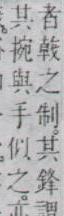 者戟之制。其鋒謂
其捥與手似之。亦